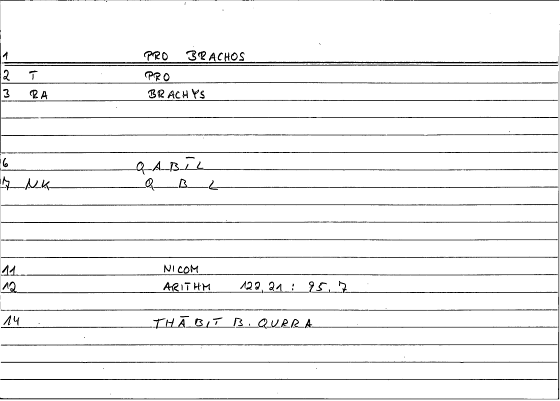 1 PRO BRACHOS
2 T PRO
3 RA BRACHYS
6 QABĪL
7 NK Q B L
11 NICOM
12 ARITHM 122,21 : 95,7
14 THĀBIT B. QURRA